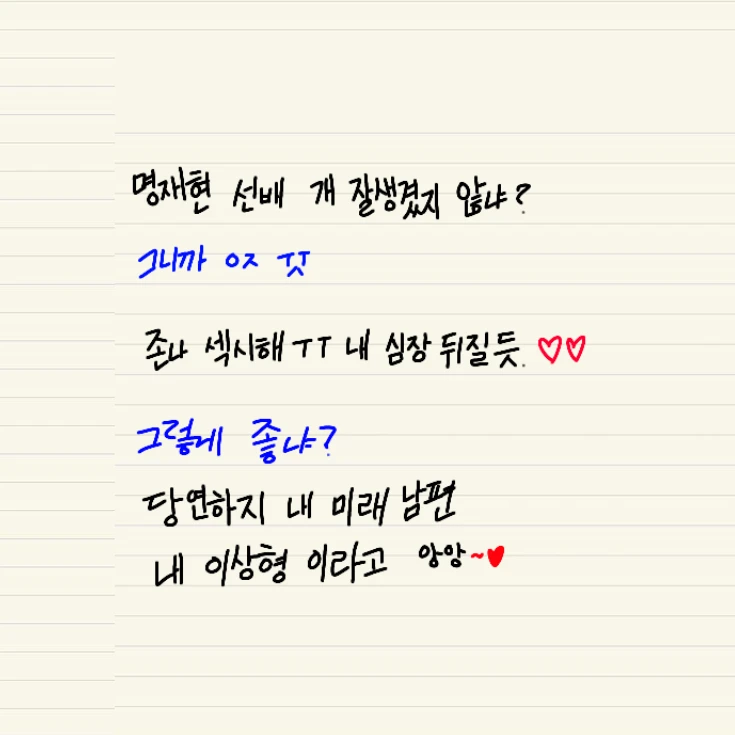 명재현 선배 개 잘생겼지 않냐?
그니까 ㅇㅈ
존나 섹시해ㅜㅜ 내 심장 뒤질듯. ♡♡
그렇게 좋냐?
당연하지 내 미래 남편
내 이상형 이라고 앙앙~♥